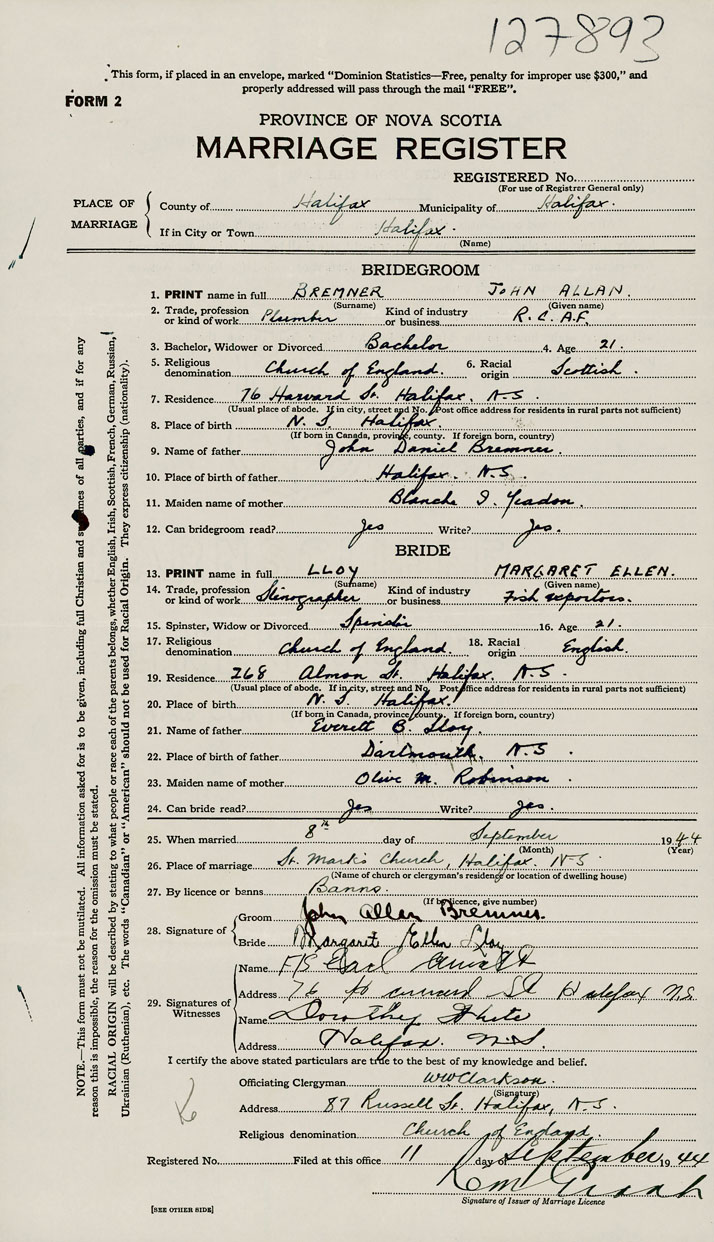 127893
This form, if placed in an envelope, marked "Dominion Statistics—Free, penalty for improper use $300," and
properly addressed will pass through the mail "FREE".
FORM 2
PROVINCE OF NOVA SCOTIA
MARRIAGE REGISTER
REGISTERED No.
(For use of Registrer General only)
PLACE OF MARRIAGE
County of Halifax Municipality of Halifax.
If in City or Town Halifax.
(Name)
BRIDEGROOM
1. PRINT name in full BREMNER JOHN ALLAN.
(Surname) (Given name)
2. Trade, profession or kind of work Plumber Kind of industry or business R.C.A.F.
3. Bachelor, Widower or Divorced Bachelor 4. Age 21.
5. Religious denomination Church of England. 6. Racial origin Scottish.
7. Residence 76 Harvard St. Halifax. N.S.
(Usual place of abode. If in city, street and No. Post office address for residents in rural parts not sufficient)
8. Place of birth N.S. Halifax.
(If born in Canada, province, county. If foreign born, country)
9. Name of father John Daniel Bremner.
10. Place of birth of father Halifax. N.S.
11. Maiden name of mother Blanche I. Yeadon.
12. Can bridegroom read? Yes Write? Yes.
BRIDE
13. PRINT name in full LLOY MARGARET ELLEN.
(Surname) (Given name)
14. Trade, profession or kind of work Stenographer Kind of industry or business Fish exporters.
15. Spinster, Widow or Divorced Spinster 16. Age 21.
17. Religious denomination Church of England. 18. Racial origin English.
19. Residence 268 Almon St. Halifax. N.S.
(Usual place of abode. If in city, street and No. Post office address for residents in rural parts not sufficient)
20. Place of birth N.S. Halifax.
(If born in Canada, province county. If foreign born, country)
21. Name of father Everett B. Lloy.
22. Place of birth of father Dartmouth. N.S.
23. Maiden name of mother Olive M. Robinson
24. Can bride read? Yes Write? Yes.
25. When married 8th day of September 1944
(Month) (Year)
26. Place of marriage St. Mark's Church, Halifax. N.S.
(Name of church or clergyman's residence or location of dwelling house)
27. By licence or banns Banns.
(If by licence, give number)
28. Signature of
Groom John Allan Bremner.
Bride Margaret Ellen Lloy
29. Signatures of Witnesses
Name F/S Earl
Address 76 Harvard St Halifax N.S.
Name Dorothy White
Address Halifax. N.S.
I certify the above stated particulars are true to the best of my knowledge and belief.
Officiating Clergyman WWClarkson.
(Signature)
Address 87 Russell St. Halifax, N.S.
Religious denomination Church of England
Registered No. Filed at this office 11 day of September 1944
Signature of Issuer of Marriage Licence
[SEE OTHER SIDE]
NOTE.—This form must not be mutilated. All information asked for is to be given, including full Christian and surnames of all parties, and if for any
reason this is impossible, the reason for the omission must be stated.
RACIAL ORIGIN will be described by stating to what people or race each of the parents belongs, whether English, Irish, Scottish, French, German, Russian,
Ukrainian (Ruthenian), etc. The words "Canadian" or "American" should not be used for Racial Origin. They express citizenship (nationality).